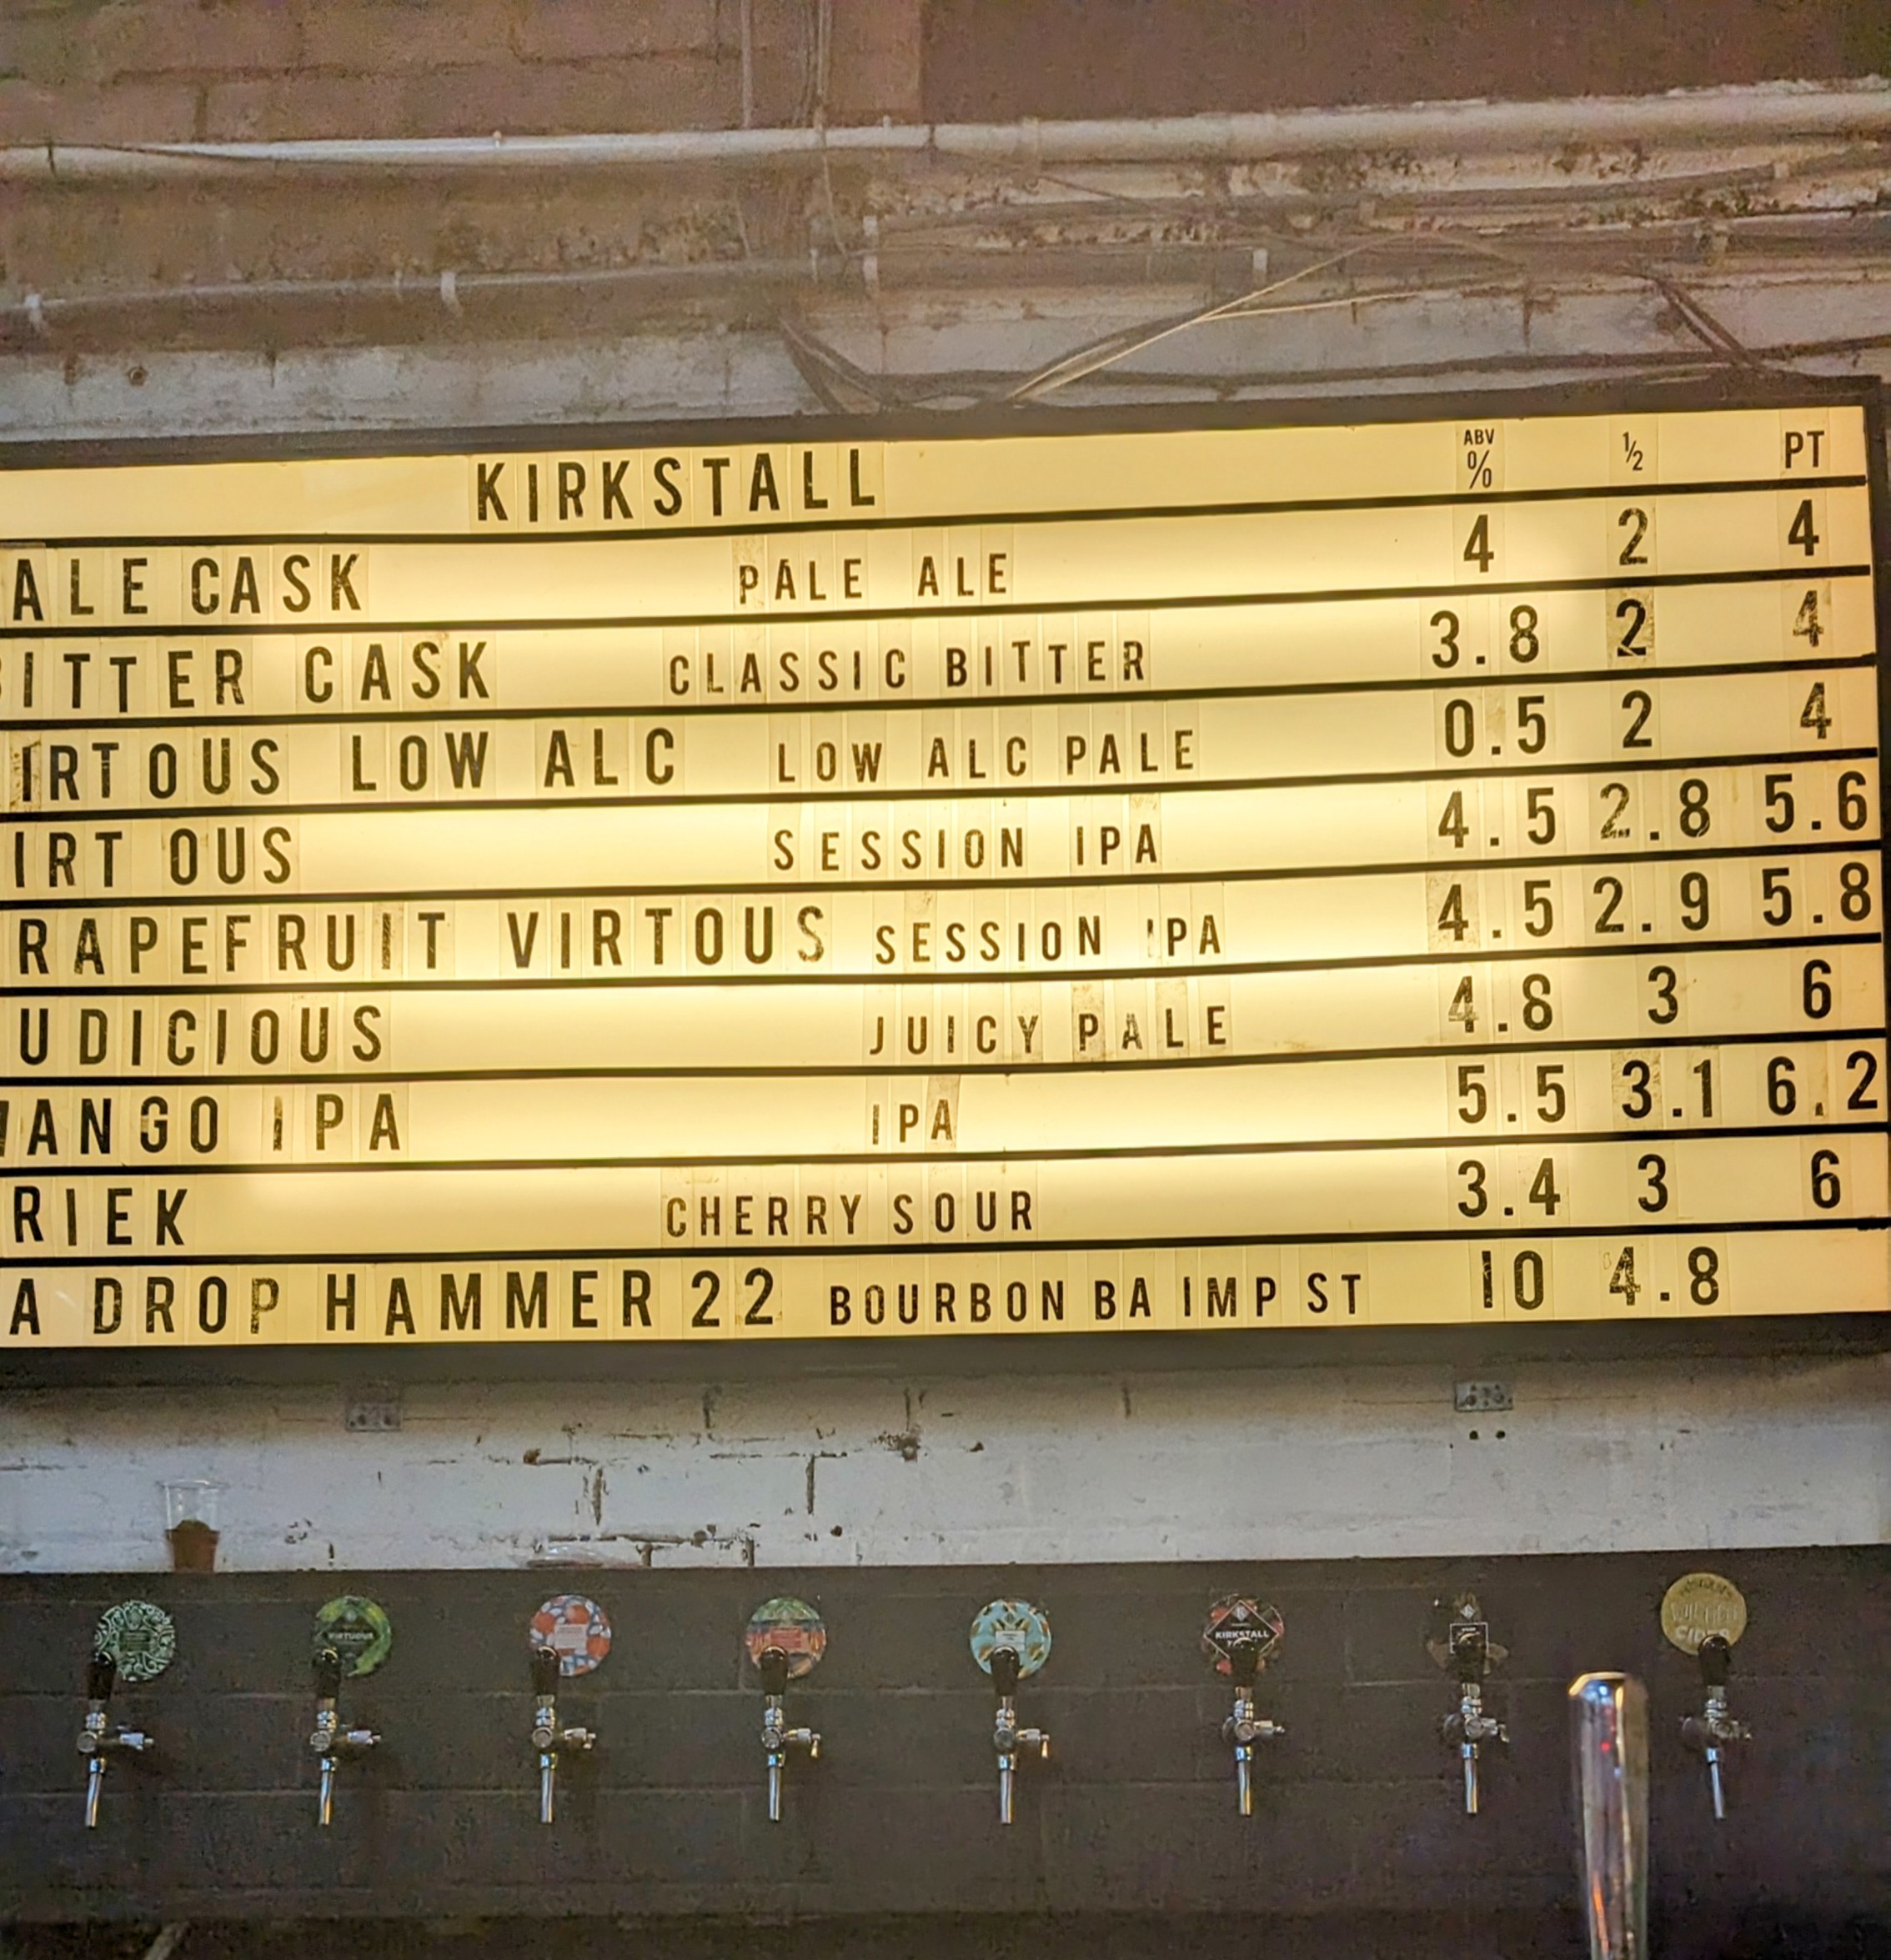 KIRKSTALL ABV % ½ PT
ALE CASK PALE ALE 4 2 4
ITTER CASK CLASSIC BITTER 3.8 2 4
IRTOUS LOW ALC LOW ALC PALE 0.5 2 4
IRT OUS SESSION IPA 4.5 2.8 5.6
RAPEFRUIT VIRTOUS SESSION IPA 4.5 2.9 5.8
UDICIOUS JUICY PALE 4.8 3 6
MANGO IPA IPA 5.5 3.1 6.2
RIEK CHERRY SOUR 3.4 3 6
A DROP HAMMER 22 BOURBON BA IMP ST 10 4.8
VIRTUOUS
KIRKSTALL
CIDER